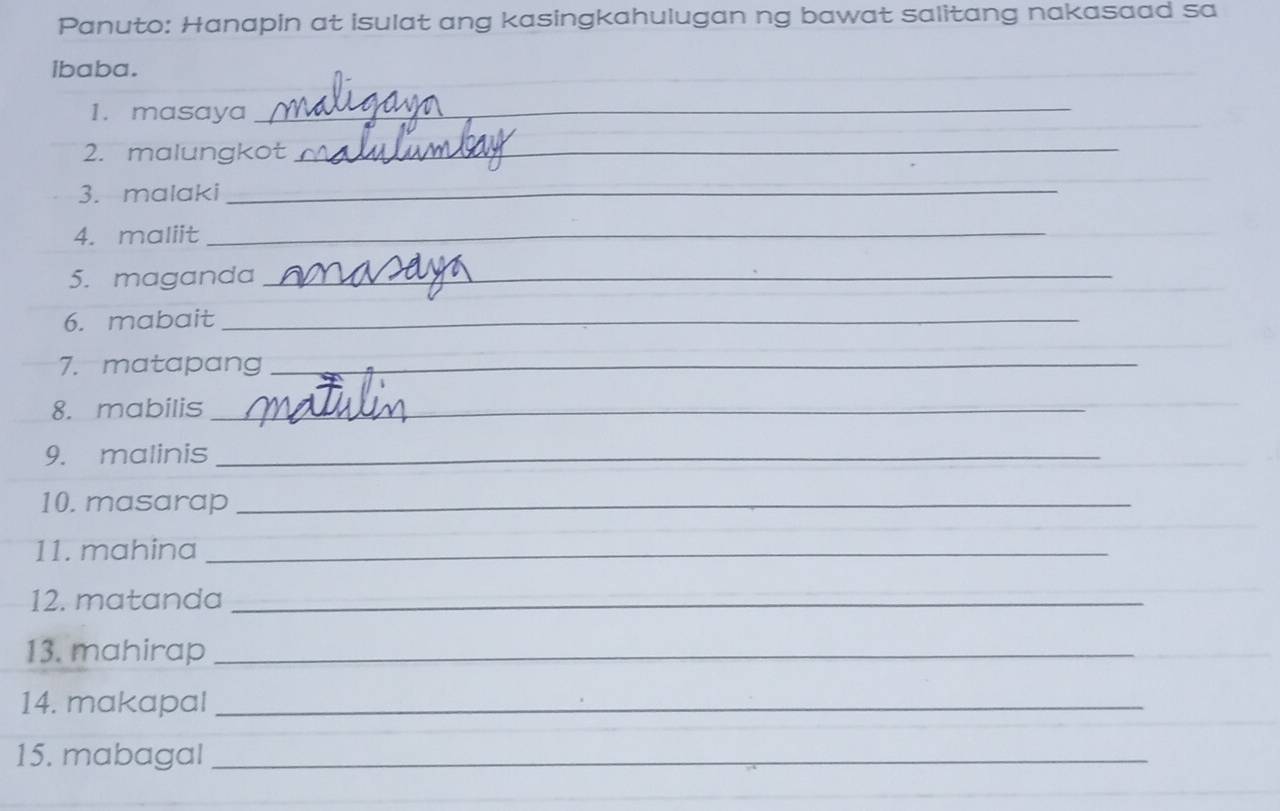 Panuto: Hanapin at isulat ang kasingkahulugan ng bawat salitang nakasaad sa
ibaba.
1. masaya maligaya
2. malungkot malulumbay
3. malaki
4. maliit
5. maganda masaya
6. mabait
7. matapang
8. mabilis matulin
9. malinis
10. masarap
11. mahina
12. matanda
13. mahirap
14. makapal
15. mabagal